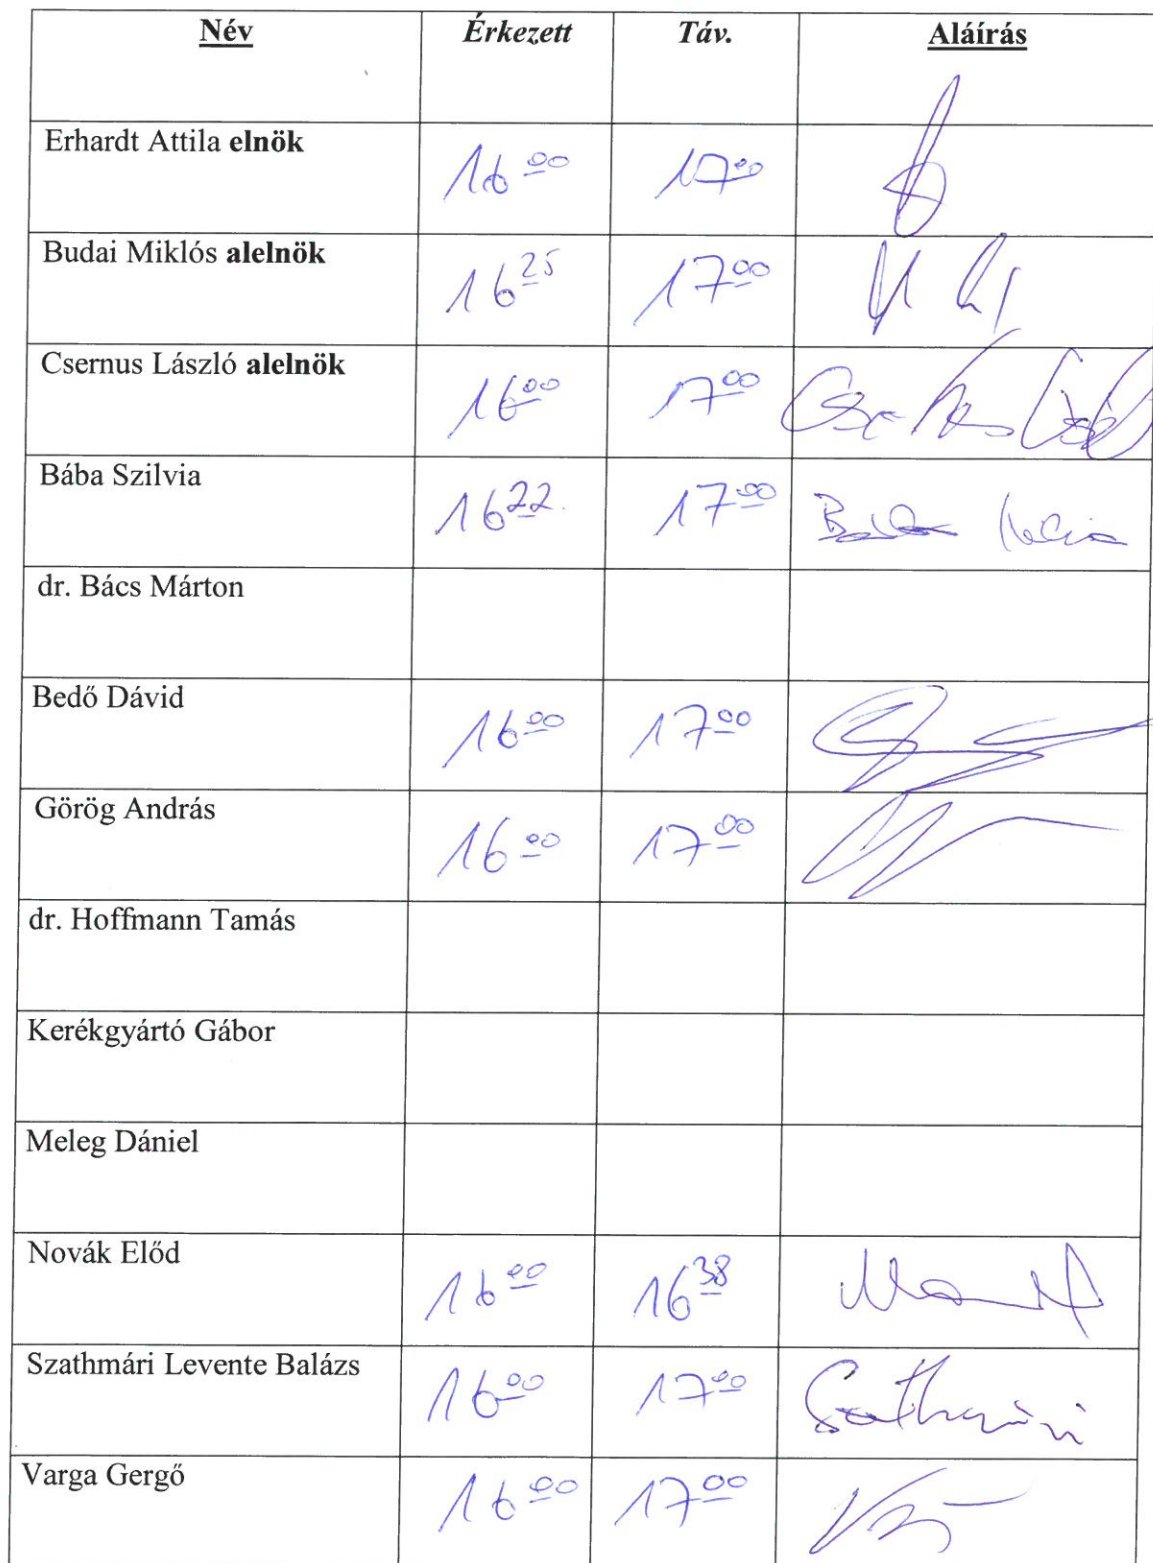 Név Érkezett Táv. Aláírás
Erhardt Attila elnök 16 00 17 00
Budai Miklós alelnök 16 25 17 00
Csernus László alelnök 16 00 17 00
Bába Szilvia 16 22 17 00
dr. Bács Márton
Bedő Dávid 16 00 17 00
Görög András 16 00 17 00
dr. Hoffmann Tamás
Kerékgyártó Gábor
Meleg Dániel
Novák Előd 16 00 16 38
Szathmári Levente Balázs 16 00 17 00 Szathmári
Varga Gergő 16 00 17 00